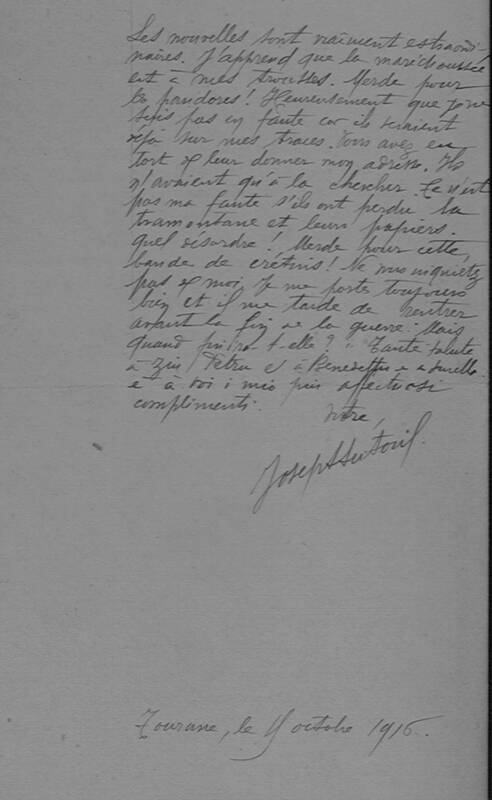 Les nouvelles sont vraiment extraordi-
naires. J'apprend que la maréchaussée
est à mes trousses. Merde pour
les pandores! Heureusement que je ne
suis pas en faute car ils seraient
déjà sur mes traces. Vous avez eu
tort de leur donner mon adresse. Ils
n'avaient qu'à la chercher. Ce n'est
pas ma faute s'ils ont perdu la
tramontane et leurs papiers.
quel désordre! Merde pour cette
bande de crétins! Ne vous inquiétez
pas de moi. Je me porte toujours
bien et il me tarde de rentrer
avant la fin de la guerre. Mais
quand finira-t-elle? Tante salute
à Ziu Petru e à Benedettu e a
e à voi i mio più affectuosi
complimenti.
Votre,
Joseph
Tourane, le octobre 1916.